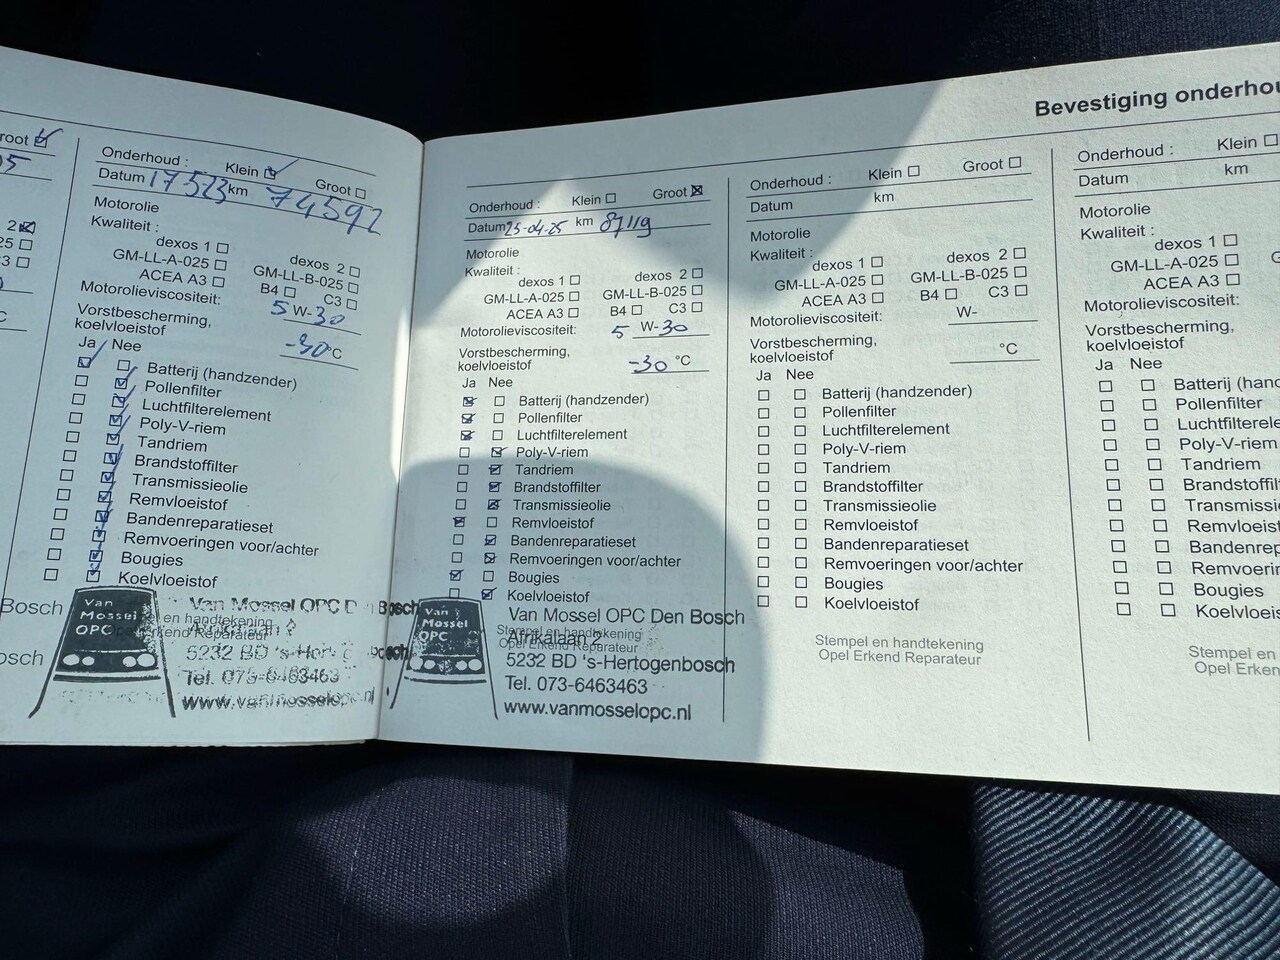 Groot
2
Bosch
Onderhoud : Klein Groot
Datum 17523 km 74592
Motorolie
Kwaliteit :
dexos 1 dexos 2
GM-LL-A-025 GM-LL-B-025
ACEA A3 B4 C3
Motorolieviscositeit: 5 W-30
Vorstbescherming,
koelvloeistof -30 °C
Ja Nee
Batterij (handzender)
Pollenfilter
Luchtfilterelement
Poly-V-riem
Tandriem
Brandstoffilter
Transmissieolie
Remvloeistof
Bandenreparatieset
Remvoeringen voor/achter
Bougies
Koelvloeistof
Van Mossel OPC
Van Mossel OPC Den Bosch
Stempel en handtekening
Opel Erkend Reparateur
5232 BD 's-Hertogenbosch
Tel. 073-6463463
www.vanmosselopc.nl
Bevestiging
Onderhoud : Klein Groot
Datum 25-04-25 km 87119
Motorolie
Kwaliteit :
dexos 1 dexos 2
GM-LL-A-025 GM-LL-B-025
ACEA A3 B4 C3
Motorolieviscositeit: 5 W-30
Vorstbescherming,
koelvloeistof -30 °C
Ja Nee
Batterij (handzender)
Pollenfilter
Luchtfilterelement
Poly-V-riem
Tandriem
Brandstoffilter
Transmissieolie
Remvloeistof
Bandenreparatieset
Remvoeringen voor/achter
Bougies
Koelvloeistof
Van Mossel OPC
Van Mossel OPC Den Bosch
Stempel en handtekening
Afrikalaan 2
Opel Erkend Reparateur
5232 BD 's-Hertogenbosch
Tel. 073-6463463
www.vanmosselopc.nl
Onderhoud : Klein Groot
Datum km
Motorolie
Kwaliteit :
dexos 1 dexos 2
GM-LL-A-025 GM-LL-B-025
ACEA A3 B4 C3
Motorolieviscositeit:
W-
Vorstbescherming,
koelvloeistof °C
Ja Nee
Batterij (handzender)
Pollenfilter
Luchtfilterelement
Poly-V-riem
Tandriem
Brandstoffilter
Transmissieolie
Remvloeistof
Bandenreparatieset
Remvoeringen voor/achter
Bougies
Koelvloeistof
Stempel en handtekening
Opel Erkend Reparateur
Onderhoud : Klein
Datum km
Motorolie
Kwaliteit :
dexos 1
GM-LL-A-025
ACEA A3
Motorolieviscositeit:
Vorstbescherming,
koelvloeistof
Ja Nee
Batterij
Pollenfilter
Poly-V-riem
Tandriem
Bougies
Stempel en
Opel